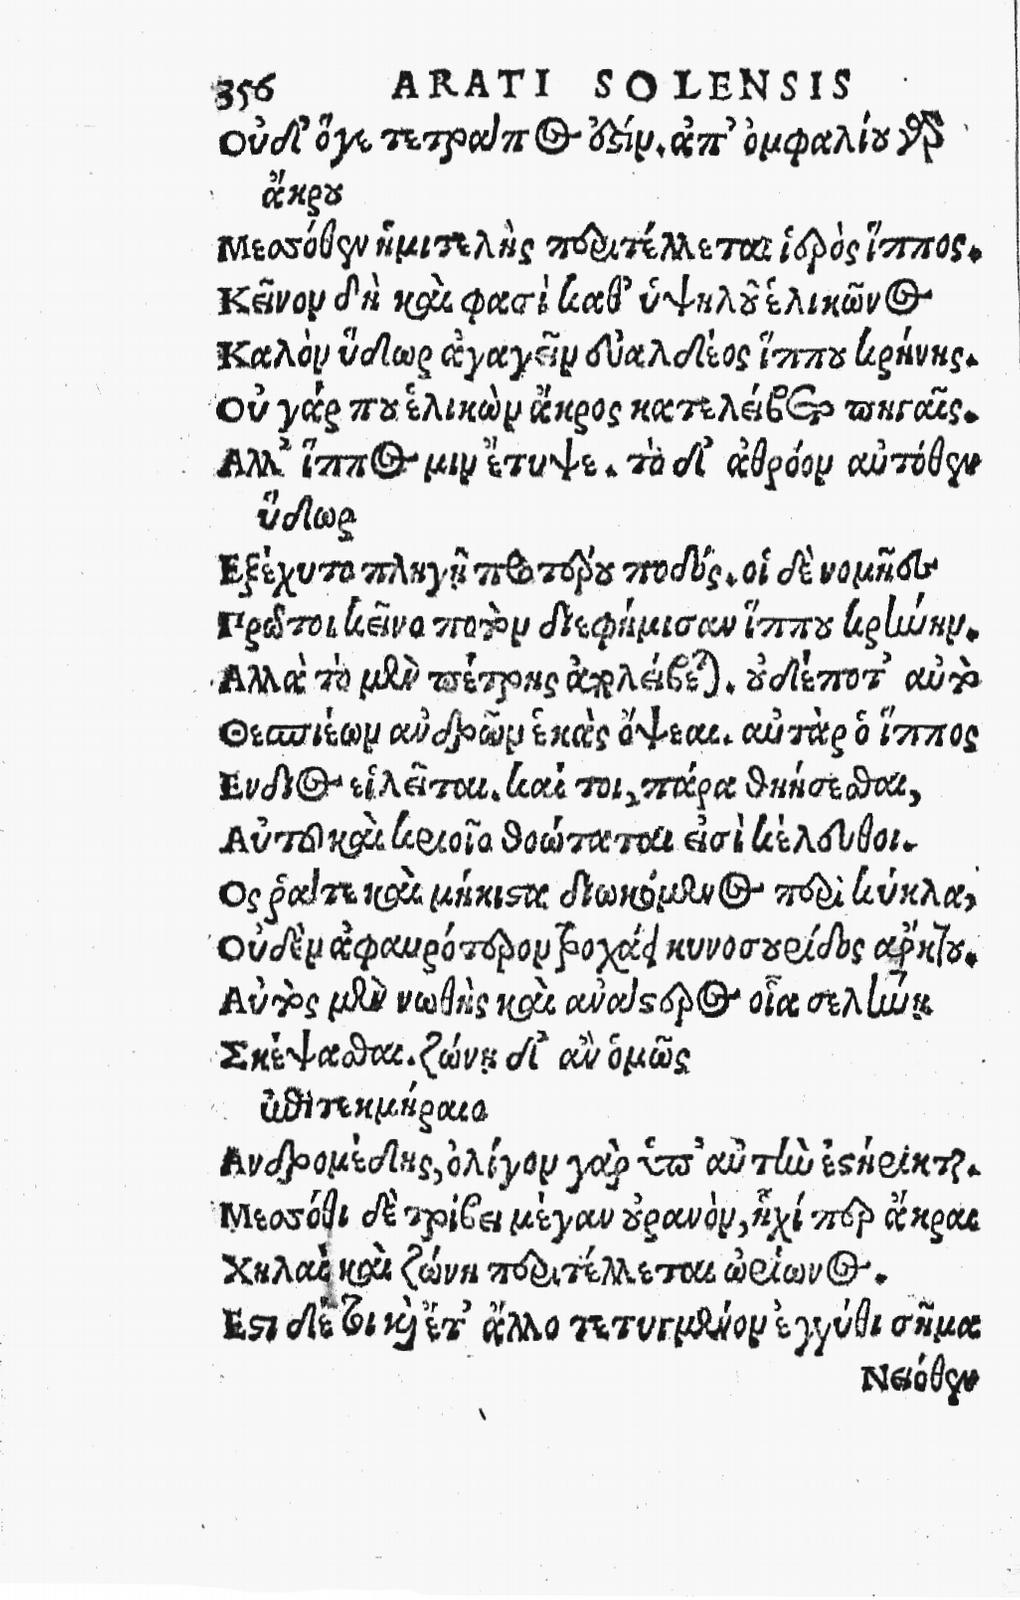 356 ARATI SOLENSIS
Οὐδ' ὅγε τετράπος ὅστιν. ἀπ' ὀμφαλίου γὰρ
ἄκρου
Μεσσόθεν ἡμιτελὴς περιτέλλεται ἱερὸς ἵππος.
Κεῖνον δὴ καὶ φασὶ καθ' ὑψηλοῦ ἑλικῶνος
Καλὸν ὕδωρ ἀγαγεῖν εὐαλδέος ἵππου κρήνης.
Οὐ γάρ που ἑλικὼν ἄκρος κατελείβετο πηγαῖς.
Αλλ' ἵππος μιν ἔτυψε. τὸ δ' ἀθρόον αὐτόθεν
ὕδωρ
Εξέχυτο πληγῇ προτέρου ποδός. οἱ δὲ νομῆες
Πρῶτοι κεῖνο ποτὸν διεφήμισαν ἵππου κρήνην.
Αλλὰ τὸ μὲν πέτρης ἀπολείβεται. οὐδέποτ' αὐτὸ
Θεσπιέων ἀνδρῶν ἑκὰς ὄψεαι. αὐτὰρ ὁ ἵππος
Ενδιος εἱλεῖται. καί τοι, πάρα θηήσεσθαι,
Αὐτοῦ καὶ κριοῖο θοώταται εἰσὶ κέλευθοι.
Ος ῥά τε καὶ μήκιστα διωκόμενος περὶ κύκλα,
Οὐδὲν ἀφαυρότερον τροχάει κυνοσουρίδος ἄρκτου.
Αὐτὸς μὲν νωθὴς καὶ ἀνάστερος οἷα σελήνῃ
Σκέψασθαι. ζώνῃ δ' ἂν ὁμῶς
ἐπιτεκμήραιο
Ανδρομέδης, ὀλίγον γὰρ ὑπ' αὐτὴν ἐστήρικται.
Μεσσόθι δὲ τρίβει μέγαν οὐρανὸν, ἧχί περ ἄκραι
Χηλαὶ καὶ ζώνη περιτέλλεται ὠρίωνος.
Εστι δέ τι καὶ ἔτ' ἄλλο τετυγμένον ἐγγύθι σῆμα
Νειόθεν